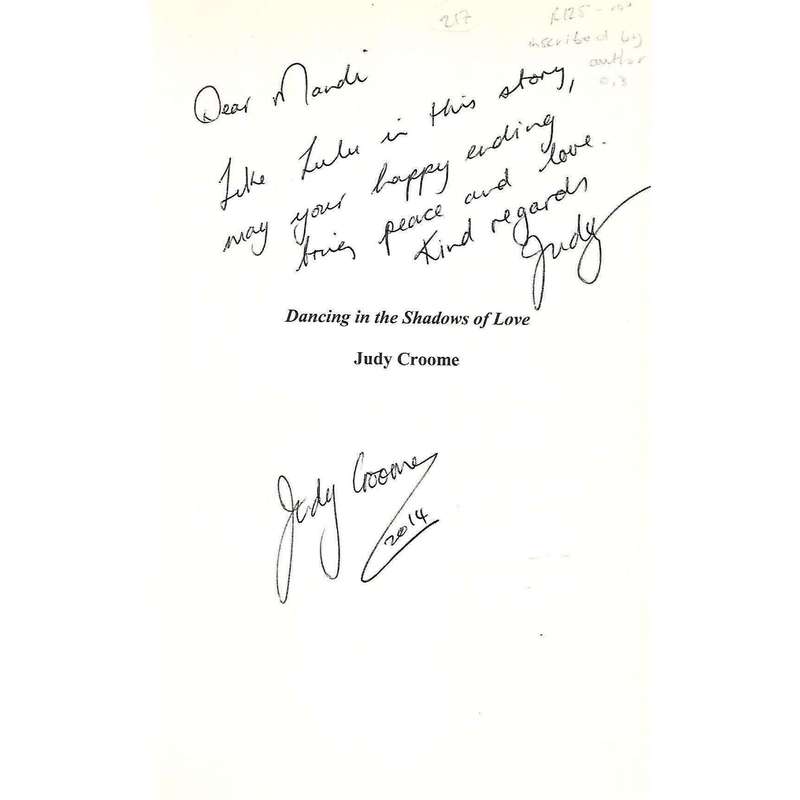 217
R125-
inscribed by
author
Dear Mandi
Like Lulu in this story,
may your happy ending
bring peace and love.
Kind regards
Judy
Dancing in the Shadows of Love
Judy Croome
Judy Croome
2014